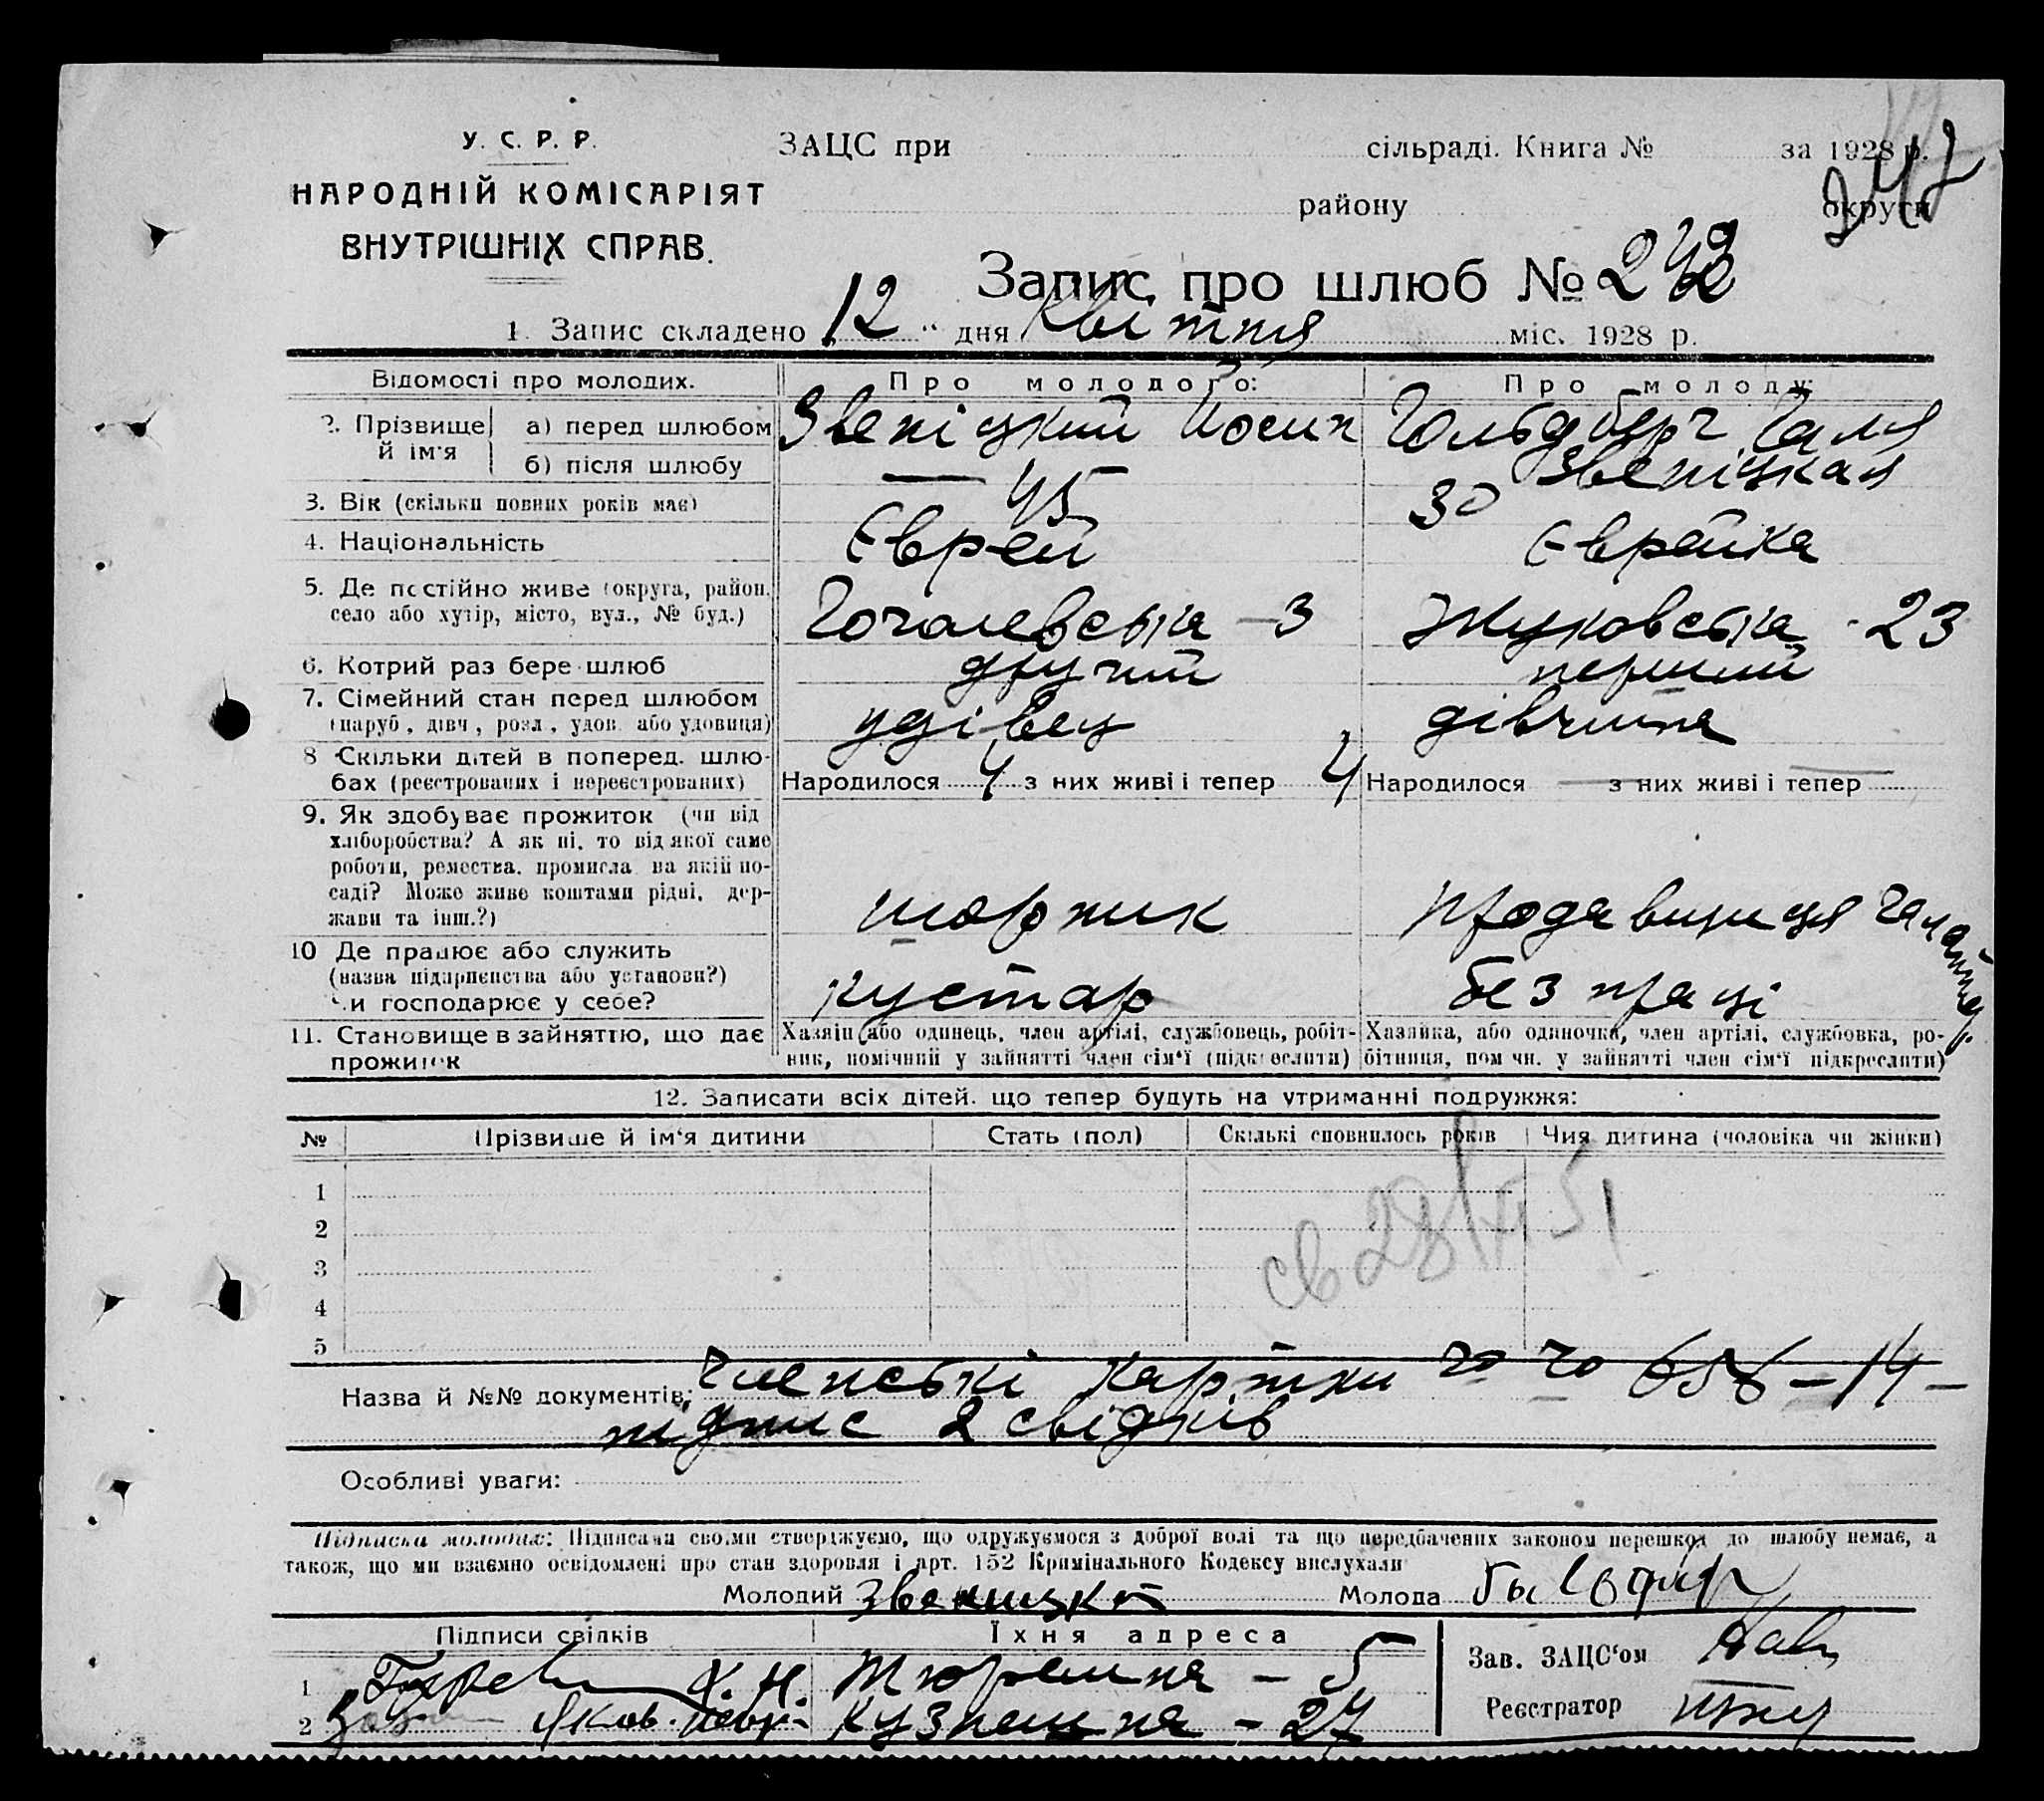 У. С. Р. Р.
НАРОДНІЙ КОМІСАРІЯТ
ВНУТРІШНІХ СПРАВ.
ЗАЦС при сільраді. Книга № за 1928 р.
району округи
247
Запис про шлюб № 242
1. Запис складено 12 " дня Квітня міс. 1928 р.
Відомості про молодих. Про молодого: Про молоду:
2. Прізвище й ім'я
а) перед шлюбом Звеніцкий Йосип Гольдберг Галя
б) після шлюбу — Звеніцкая
3. Вік (скільки повних років має) 45 30
4. Національність Єврей Єврейка
5. Де постійно живе (округа, район,
село або хутір, місто, вул., № буд.) Гоголевська – 3 Жуковська - 23
6. Котрий раз бере шлюб другий перший
7. Сімейний стан перед шлюбом
(паруб., дівч., розл., удов. або удовиця) удівец дівчина
8 Скільки дітей в поперед. шлю-
бах (реєстрованих і нереєстрованих) Народилося 4 з них живі і тепер 4 Народилося — з них живі і тепер —
9. Як здобуває прожиток (чи від
хліборобства? А як ні, то від якої саме
роботи, ремества, промисла на якій по-
саді? Може живе коштами рідні, дер-
жави та інш.?) шорник продавщиця галантер.
10 Де працює або служить
(назва підприємства або установи?)
Чи господарює у себе? кустар без праці
11. Становище в зайняттю, що дає
прожиток
Хазяїн або одинець, член артілі, службовець, робіт-
ник, помічний у зайнятті член сім'ї (підкреслити)
Хазяйка, або одиночка, член артілі, службовка, ро-
бітниця, помічн. у зайнятті член сім'ї підкреслити)
12. Записати всіх дітей, що тепер будуть на утриманні подружжя:
№ Прізвище й ім'я дитини Стать (пол) Скількі сповнилось років Чия дитина (чоловіка чи жінки)
1
2
3
4
5
Назва й №№ документів: Членські картки 658 – 14 –
підпис 2 свідків
Особливі уваги:
Підписка молодих: Підписами своїми стверджуємо, що одружуємося з доброї волі та що передбачених законом перешкод до шлюбу немає, а
також, що ми взаємно освідомлені про стан здоровля і арт. 152 Кримінального Кодексу вислухали
Молодий Звеницкий Молода
Підписи свідків Їхня адреса
1 Х. Н. Тюремна – 5
2 Яков. Кузнешна – 27
Зав. ЗАЦС'ом
Реєстратор